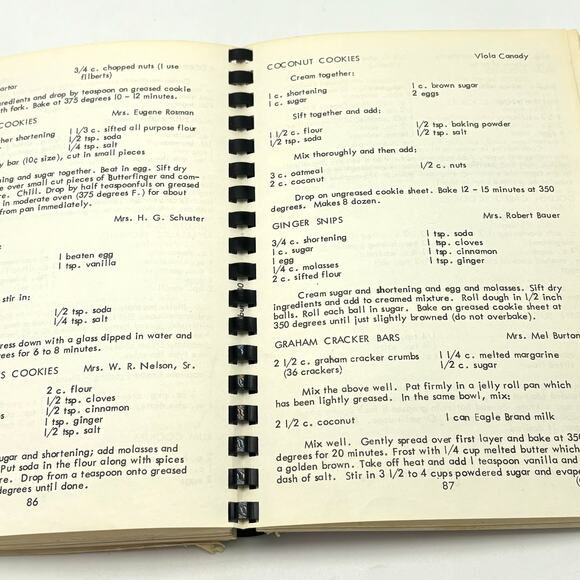 3/4 c. chopped nuts (I use
filberts)
artar
gredients and drop by teaspoon on greased cookie
th fork. Bake at 375 degrees 10 - 12 minutes.
COOKIES Mrs. Eugene Rosman
her shortening 1 1/3 c. sifted all purpose flour
1/2 tsp. soda
1/4 tsp. salt
y bar (10¢ size), cut in small pieces
ning and sugar together. Beat in egg. Sift dry
e over small cut pieces of Butterfinger and com-
re. Chill. Drop by half teaspoonfuls on greased
in moderate oven (375 degrees F.) for about
from pan immediately.
Mrs. H. G. Schuster
:
1 beaten egg
1 tsp. vanilla
stir in:
1/2 tsp. soda
1/4 tsp. salt
ress down with a glass dipped in water and
ees for 6 to 8 minutes.
S COOKIES Mrs. W. R. Nelson, Sr.
2 c. flour
1/2 tsp. cloves
1/2 tsp. cinnamon
1 tsp. ginger
1/2 tsp. salt
ugar and shortening; add molasses and
Put soda in the flour along with spices
re. Drop from a teaspoon onto greased
degrees until done.
86
COCONUT COOKIES Viola Canady
Cream together:
1 c. shortening 1 c. brown sugar
1 c. sugar 2 eggs
Sift together and add:
1 1/2 c. flour 1/2 tsp. baking powder
1/2 tsp. soda 1/2 tsp. salt
Mix thoroughly and then add:
3 c. oatmeal 1/2 c. nuts
2 c. coconut
Drop on ungreased cookie sheet. Bake 12 - 15 minutes at 350
degrees. Makes 8 dozen.
GINGER SNIPS Mrs. Robert Bauer
3/4 c. shortening 1 tsp. soda
1 c. sugar 1 tsp. cloves
1 egg 1 tsp. cinnamon
1/4 c. molasses 1 tsp. ginger
2 c. sifted flour
Cream sugar and shortening and egg and molasses. Sift dry
ingredients and add to creamed mixture. Roll dough in 1/2 inch
balls. Roll each ball in sugar. Bake on greased cookie sheet at
350 degrees until just slightly browned (do not overbake).
GRAHAM CRACKER BARS Mrs. Mel Burton
2 1/2 c. graham cracker crumbs 1 1/4 c. melted margarine
(36 crackers) 1/2 c. sugar
Mix the above well. Pat firmly in a jelly roll pan which
has been lightly greased. In the same bowl, mix:
2 1/2 c. coconut 1 can Eagle Brand milk
Mix well. Gently spread over first layer and bake at 350
degrees for 20 minutes. Frost with 1/4 cup melted butter which
a golden brown. Take off heat and add 1 teaspoon vanilla and
dash of salt. Stir in 3 1/2 to 4 cups powdered sugar and evap
87